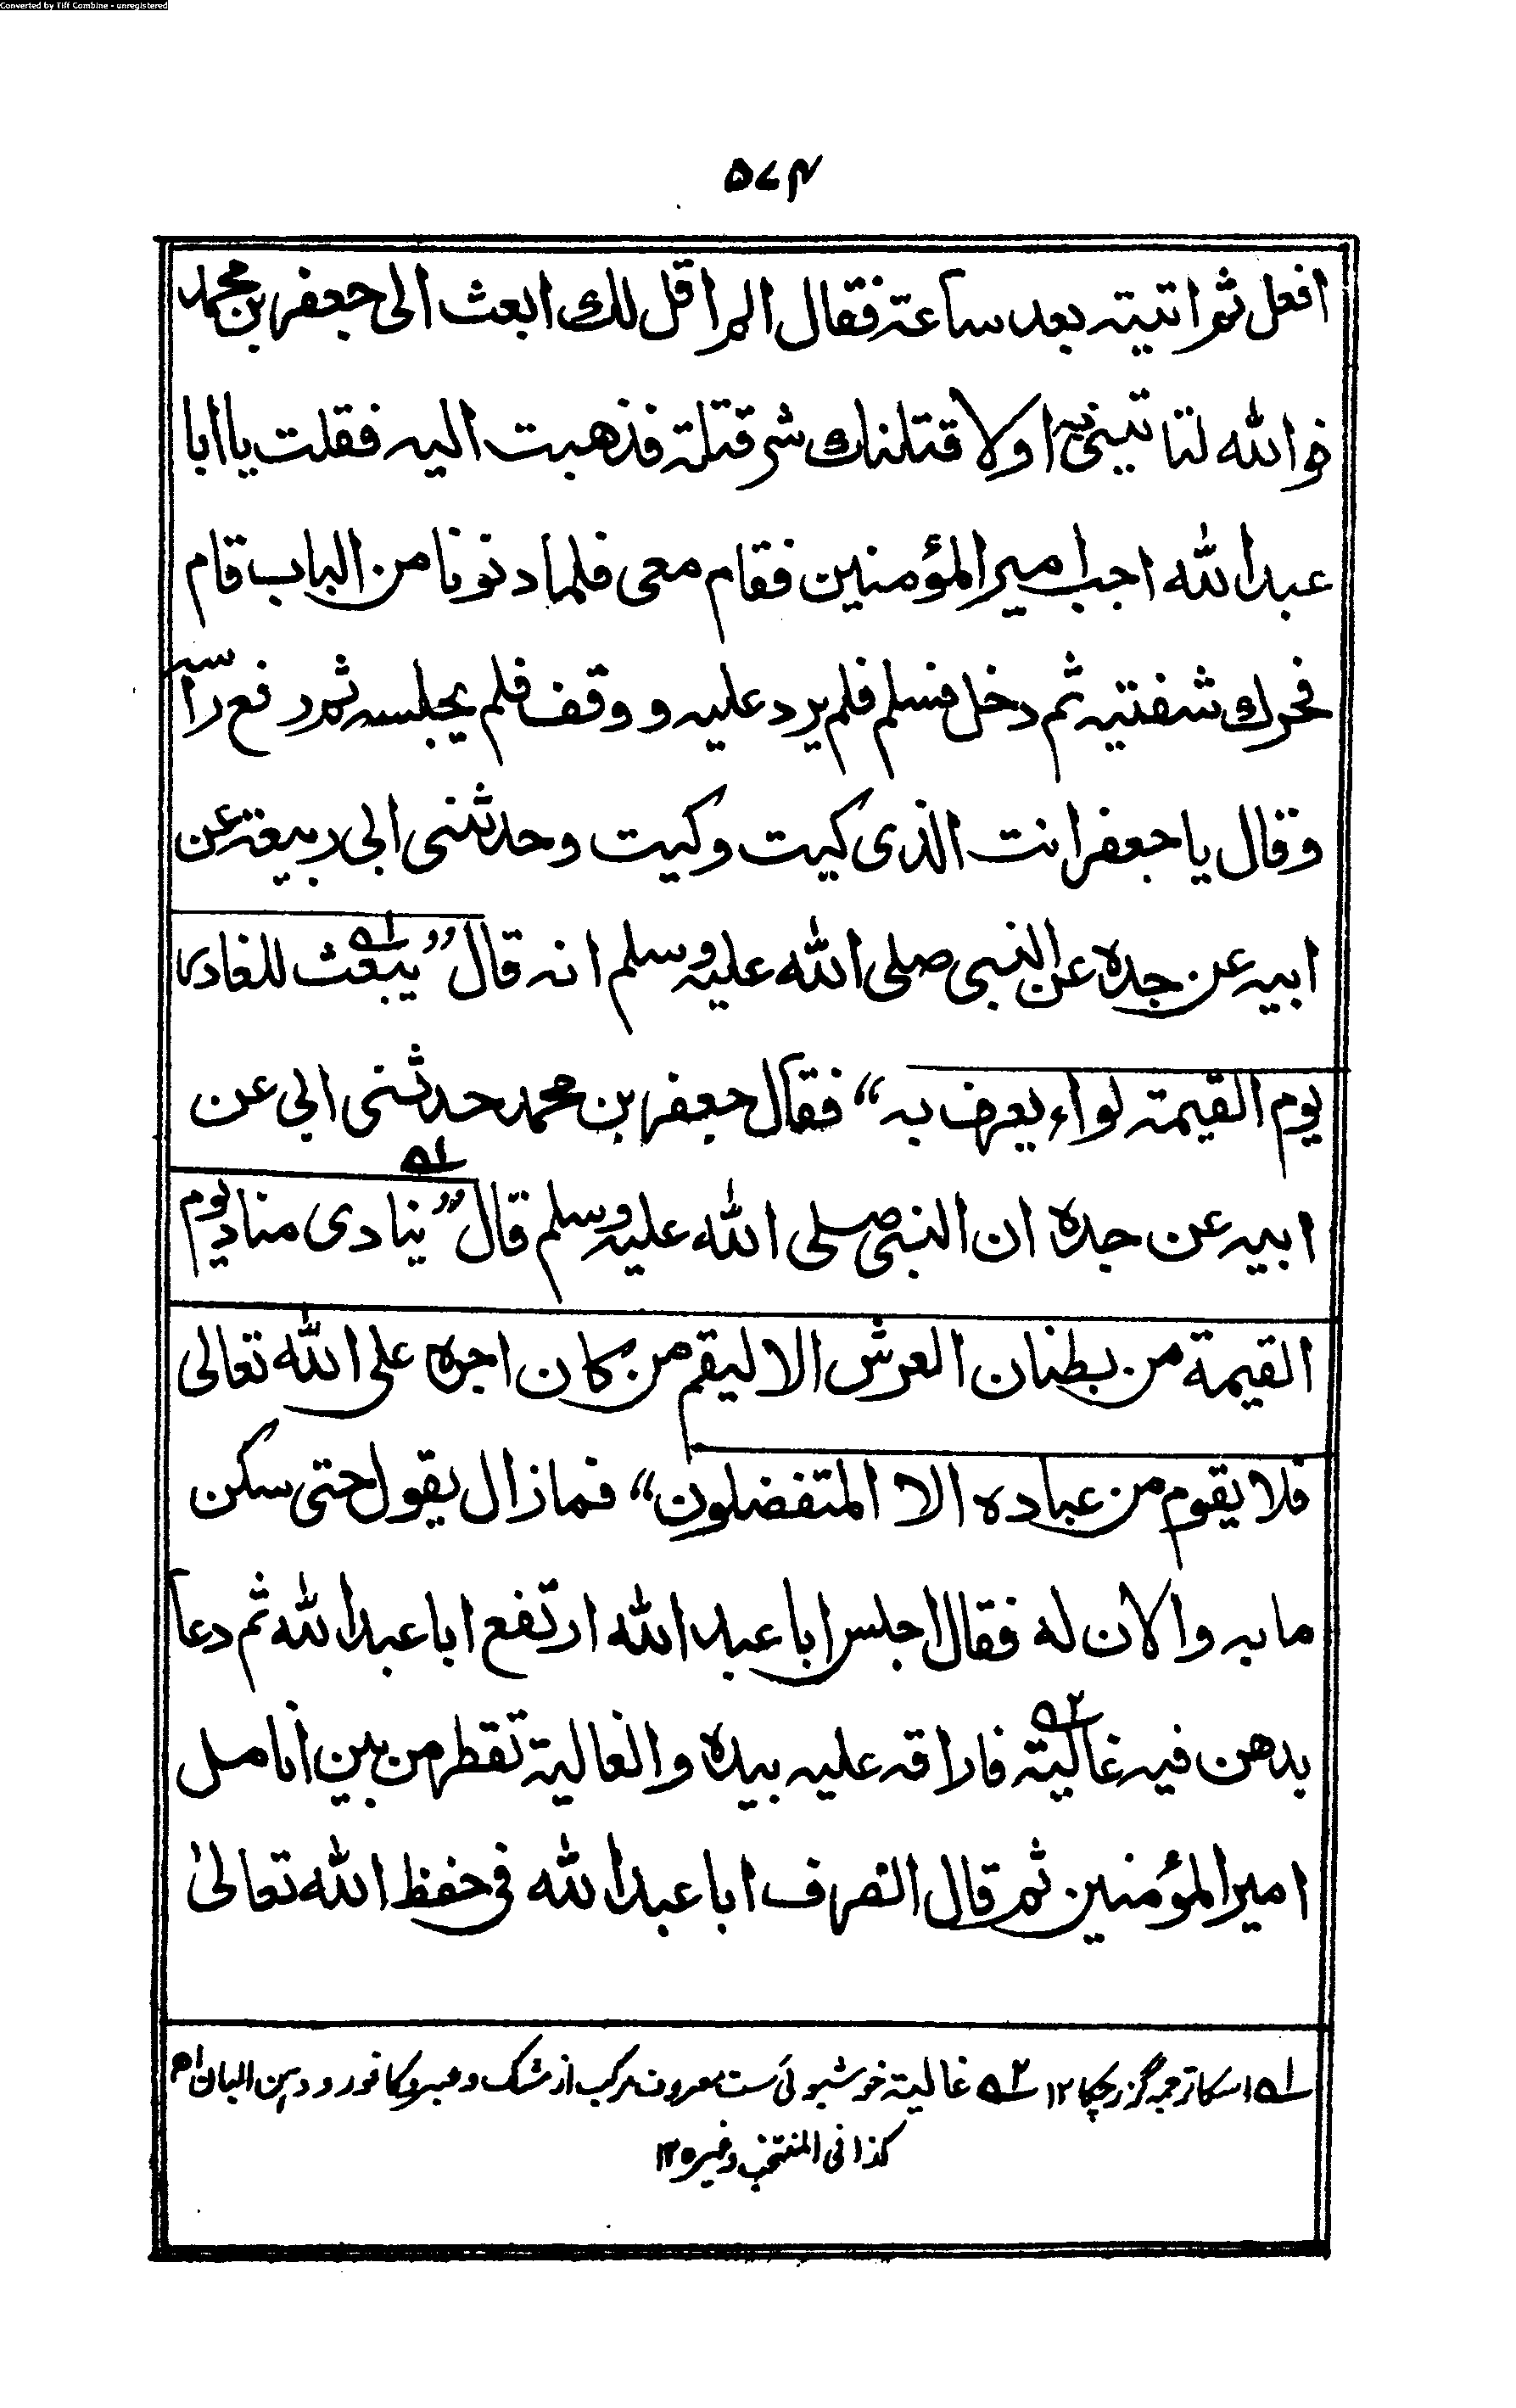 Converted by Tiff Combine - unregistered
۵۷۴
افعل ثم اتیته بعد ساعة فقال الم اقل لك ابعث الی جعفر بن محمد
فو الله لتاتینی به او لاقتلنك شر قتلة فذهبت الیه فقلت یا ابا
عبد الله اجب امیر المؤمنین فقام معی فلما دنونا من الباب قام
فحرك شفتیه ثم دخل فسلم فلم یرد علیه و وقف فلم یجلسه ثم رفع راسه
وقال یا جعفر انت الذی کیت وکیت وحدثنی ابی ربیعة عن
ابیه عن جده عن النبی صلی الله علیه وسلم انه قال ”یبعث للغادر
یوم القیمة لواء یعرف به“ فقال جعفر بن محمد حدثنی ابی عن
ابیه عن جده ان النبی صلی الله علیه وسلم قال ”ینادی مناد یوم
القیمة من بطنان العرش الا لیقم من کان اجره علی الله تعالی
فلا یقوم من عباده الا المتفضلون“ فما زال یقول حتی سکن
ما به و الان له فقال اجلس ابا عبد الله ارتفع ابا عبد الله ثم دعا
بدهن فیه غالیة فاراقه علیه بیده والغالیة تقطر من بین انامل
امیر المؤمنین ثم قال انصرف ابا عبد الله فی حفظ الله تعالیٰ
۱؎ اسکا ترجمه گزر چکا ۱۲ ۲؎ غالیة خوشبوئی ست معروف مرکب از مشک و عنبر و کافور و دهن البان ۱م
کذا فی المنتخب وغیره ۱۲